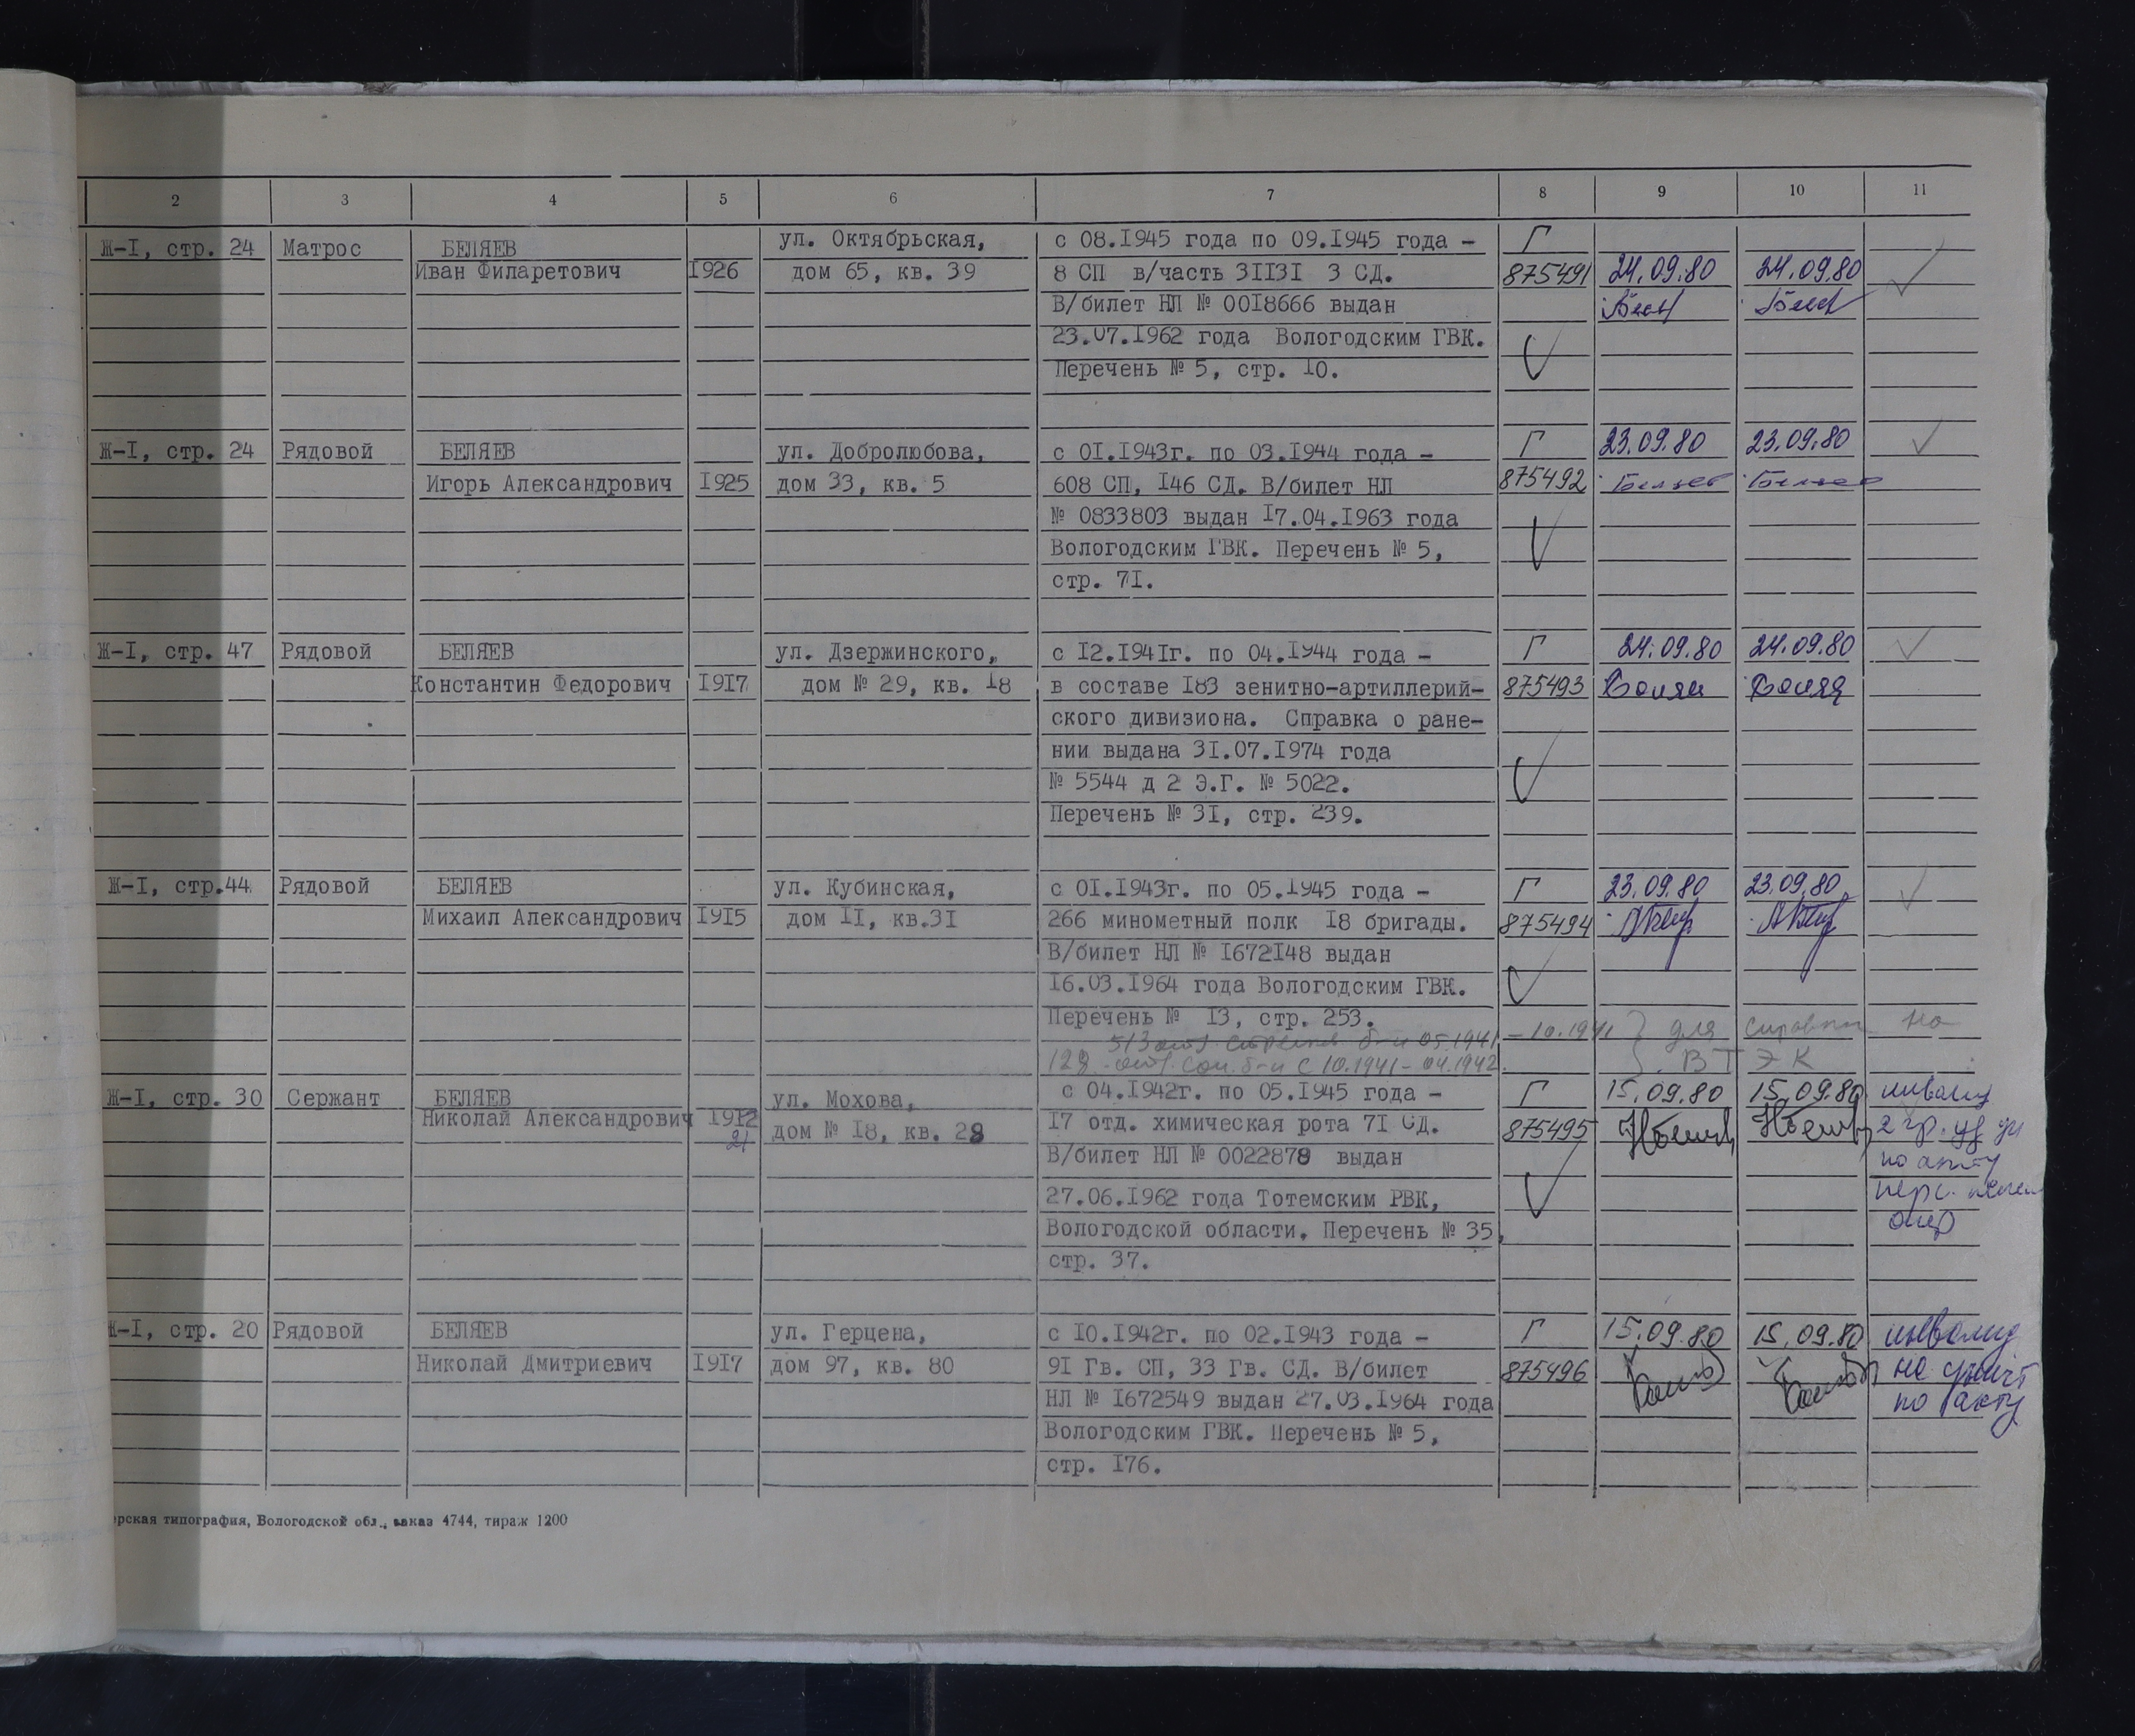 2 3 4 5 6 7 8 9 10 11
Ж-I, стр. 24 Матрос БЕЛЯЕВ ул. Октябрьская, с 08.I945 года по 09.I945 года – Г
Иван Филаретович I926 дом 65, кв. 39 8 СП в/часть 3II3I 3 СД. 875491 24.09.80 24.09.80
В/билет НЛ № 00I8666 выдан
23.07.I962 года Вологодским ГВК.
Перечень № 5, стр. I0.
Ж-I, стр. 24 Рядовой БЕЛЯЕВ ул. Добролюбова, с 0I.I943г. по 03.I944 года – Г 23.09.80 23.09.80
Игорь Александрович I925 дом 33, кв. 5 608 СП, I46 СД. В/билет НЛ 875492 Беляев Беляев
№ 0833803 выдан I7.04.I963 года
Вологодским ГВК. Перечень № 5,
стр. 7I.
Ж-I, стр. 47 Рядовой БЕЛЯЕВ ул. Дзержинского, с I2.I94Iг. по 04.I944 года – Г 24.09.80 24.09.80
Константин Федорович I9I7 дом № 29, кв. I8 в составе I83 зенитно-артиллерий- 875493 Беляя Беляя
ского дивизиона. Справка о ране-
нии выдана 3I.07.I974 года
№ 5544 д 2 Э.Г. № 5022.
Перечень № 3I, стр. 239.
Ж-I, стр.44 Рядовой БЕЛЯЕВ ул. Кубинская, с 0I.I943г. по 05.I945 года – Г 23.09.80 23.09.80
Михаил Александрович I9I5 дом II, кв.3I 266 минометный полк I8 бригады. 875494
В/билет НЛ № I672I48 выдан
I6.03.I964 года Вологодским ГВК.
Перечень № I3, стр. 253.
513 05.1941 – 10.1941 } для справки на
128 б-н с 10.1941 – 04.1942. ВТЭК
Ж-I, стр. 30 Сержант БЕЛЯЕВ ул. Мохова, с 04.I942г. по 05.I945 года – Г 15.09.80 15.09.80 инвалид
Николай Александрович I9I2 дом № I8, кв. 28 I7 отд. химическая рота 7I СД. 875495 2 гр.
21 В/билет НЛ № 0022878 выдан по акту
27.06.I962 года Тотемским РВК, перс.
Вологодской области. Перечень № 35,
стр. 37.
Ж-I, стр. 20 Рядовой БЕЛЯЕВ ул. Герцена, с I0.I942г. по 02.I943 года – Г 15.09.80 15.09.80 инвалид
Николай Дмитриевич I9I7 дом 97, кв. 80 9I Гв. СП, 33 Гв. СД. В/билет 875496 не
НЛ № I672549 выдан 27.03.I964 года по акту
Вологодским ГВК. Перечень № 5,
стр. I76.
рская типография, Вологодской обл., заказ 4744, тираж 1200